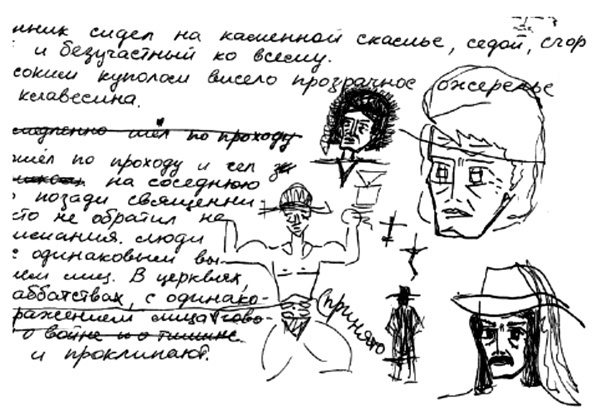 нник сидел на каменной скамье, седой, сгор
и безучастный ко всему.
соким куполом висело прозрачное ожерелье
клавесина.
медленно шёл по проходу
шёл по проходу и сел за
на соседнюю
позади священни
сто не обратил на
исания. люди
с одинаковым вы
ием лиц. В церквях,
аббатствах, с одинако-
ражением лица гово-
о войне и о тишине
и проклинают.
(принято